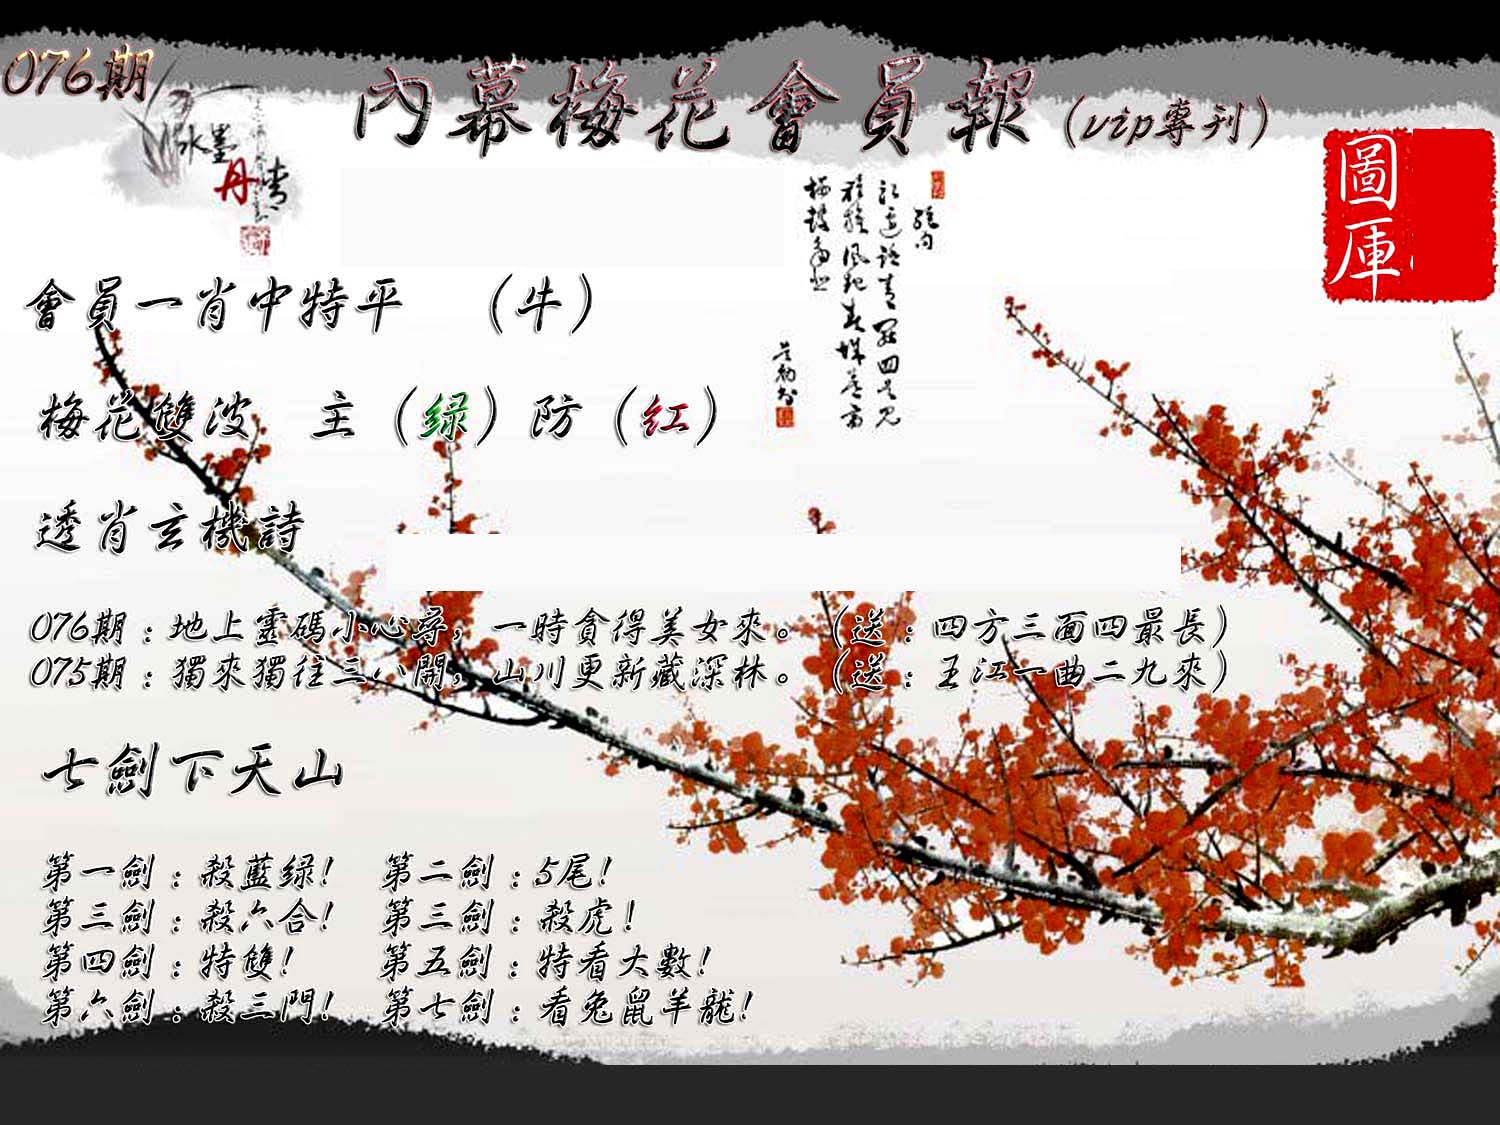 076期
內幕梅花會員報（vip專刊）
水墨
丹青
圖
庫
會員一肖中特平 （牛）
梅花雙波 主（绿）防（红）
透肖玄機詩
076期：地上靈碼小心尋，一時貪得美女來。（送：四方三面四最長）
075期：獨來獨往三八開，山川更新藏深林。（送：王江一曲二九來）
七劍下天山
第一劍：殺藍绿！ 第二劍：5尾！
第三劍：殺六合！ 第三劍：殺虎！
第四劍：特雙！ 第五劍：特看大數！
第六劍：殺三門！ 第七劍：看兔鼠羊龍！